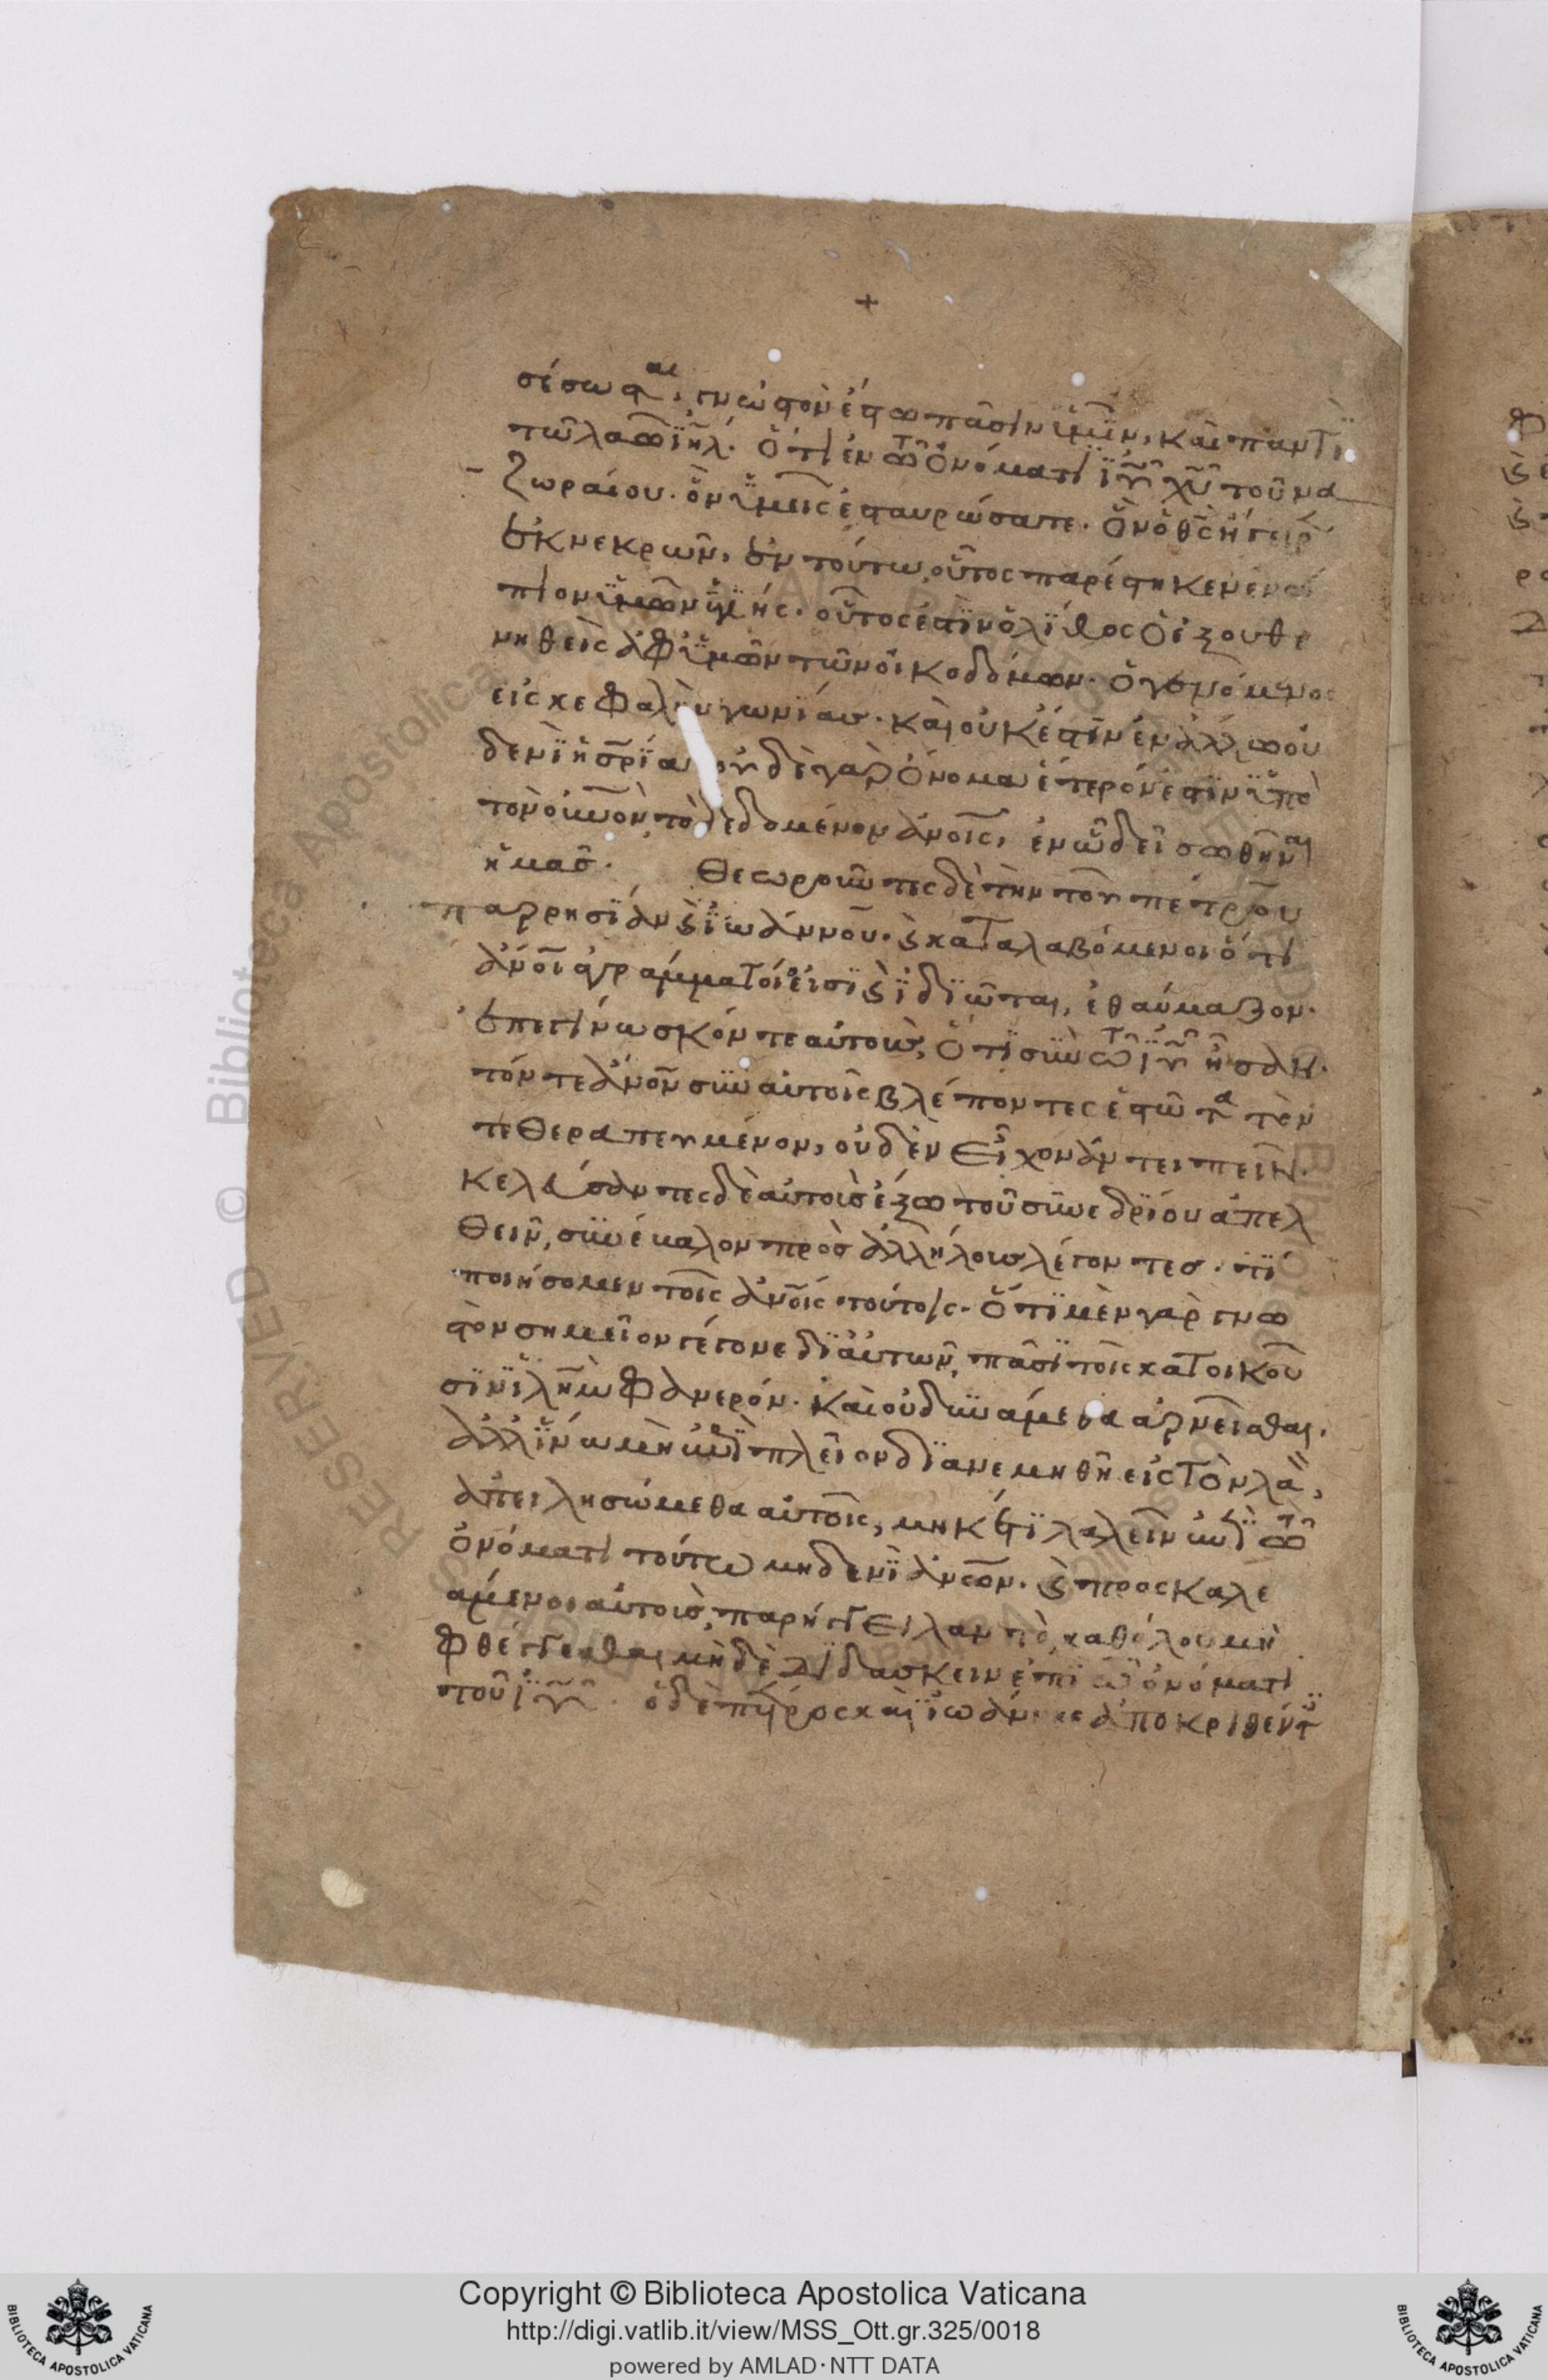 +
σέσωσται, γνωστὸν ἔστω πᾶσιν ὑμῖν, καὶ παντὶ
τῶ λαῶ ἰηλ. ὅτι ἐν τῶ ὀνόματι ἰυ χυ τοῦ να
ζωραίου. ὃν ὑμεῖς ἐσταυρώσατε. ὃν ὁ θς ἤγειρ
ἐκ νεκρῶν, ἐν τούτω οὗτος παρέστηκεν ἐνώ
πιον ὑμῶν ὑγιής. οὗτος ἐστὶν ὁ λίθος ὁ ἐξουθε
νηθεὶς ἀφ ὑμῶν τῶν οἰκοδόμων. ὁ γενόμενος
εἰς κεφαλὴν γωνίας. καὶ οὐκ ἔστιν ἐν ἄλλω οὐ
δενὶ ἡ σρία οὐδὲ γὰρ ὄνομα ἕτερον ἐστὶν ὑπὸ
τὸν οὐνον τὸ δεδομένον ἀνοις, ἐν ὧ δεῖ σωθῆναι
ἡμᾶς. Θεωροῦντες δὲ τὴν τοῦ πέτρου
παρρησίαν ϗ ἰωάννου. ϗ καταλαβόμενοι ὅτι
ἀνοι ἀγράμματοί εἰσι ϗ ἰδιῶται, ἐθαύμαζον.
ἐπεγίνωσκόν τε αὐτοὺς, ὅτι σὺν τῶ ἰυ ἦσαν.
τόν τε ἀνον σὺν αὐτοῖς βλέποντες ἑστῶτα τὸν
τεθεραπευμένον, οὐδὲν εἶχον ἀντειπεῖν.
κελεύσαντες δὲ αὐτοὺς ἔξω τοῦ συνεδρίου ἀπελ
θεῖν, συνέβαλον πρὸς ἀλλήλους λέγοντες. τί
ποιήσομεν τοῖς ἀνοις τούτοις. ὅτι μὲν γὰρ γνω
στὸν σημεῖον γέγονε δι αὐτῶν, πᾶσι τοῖς κατοικοῦ
σιν ιλημ φανερόν. καὶ οὐ δυνάμεθα ἀρνεῖσθαι.
ἀλλ ἵνα μὴ ἐπὶ πλεῖον διανεμηθῆ εἰς τὸν λαὸν,
ἀπειλησώμεθα αὐτοῖς, μηκέτι λαλεῖν ἐπὶ τῶ
ὀνόματι τούτω μηδενὶ ἀνων. ϗ προσκαλε
σάμενοι αὐτοὺς, παρήγγειλαν τὸ καθόλου μὴ
φθέγγεσθαι μηδὲ διδάσκειν ἐπὶ τῶ ὀνόματι
τοῦ ἰυ. ὁ δὲ πέτρος καὶ ἰωάννης ἀποκριθέντ
Copyright © Biblioteca Apostolica Vaticana
http://digi.vatlib.it/view/MSS_Ott.gr.325/0018
powered by AMLAD·NTT DATA